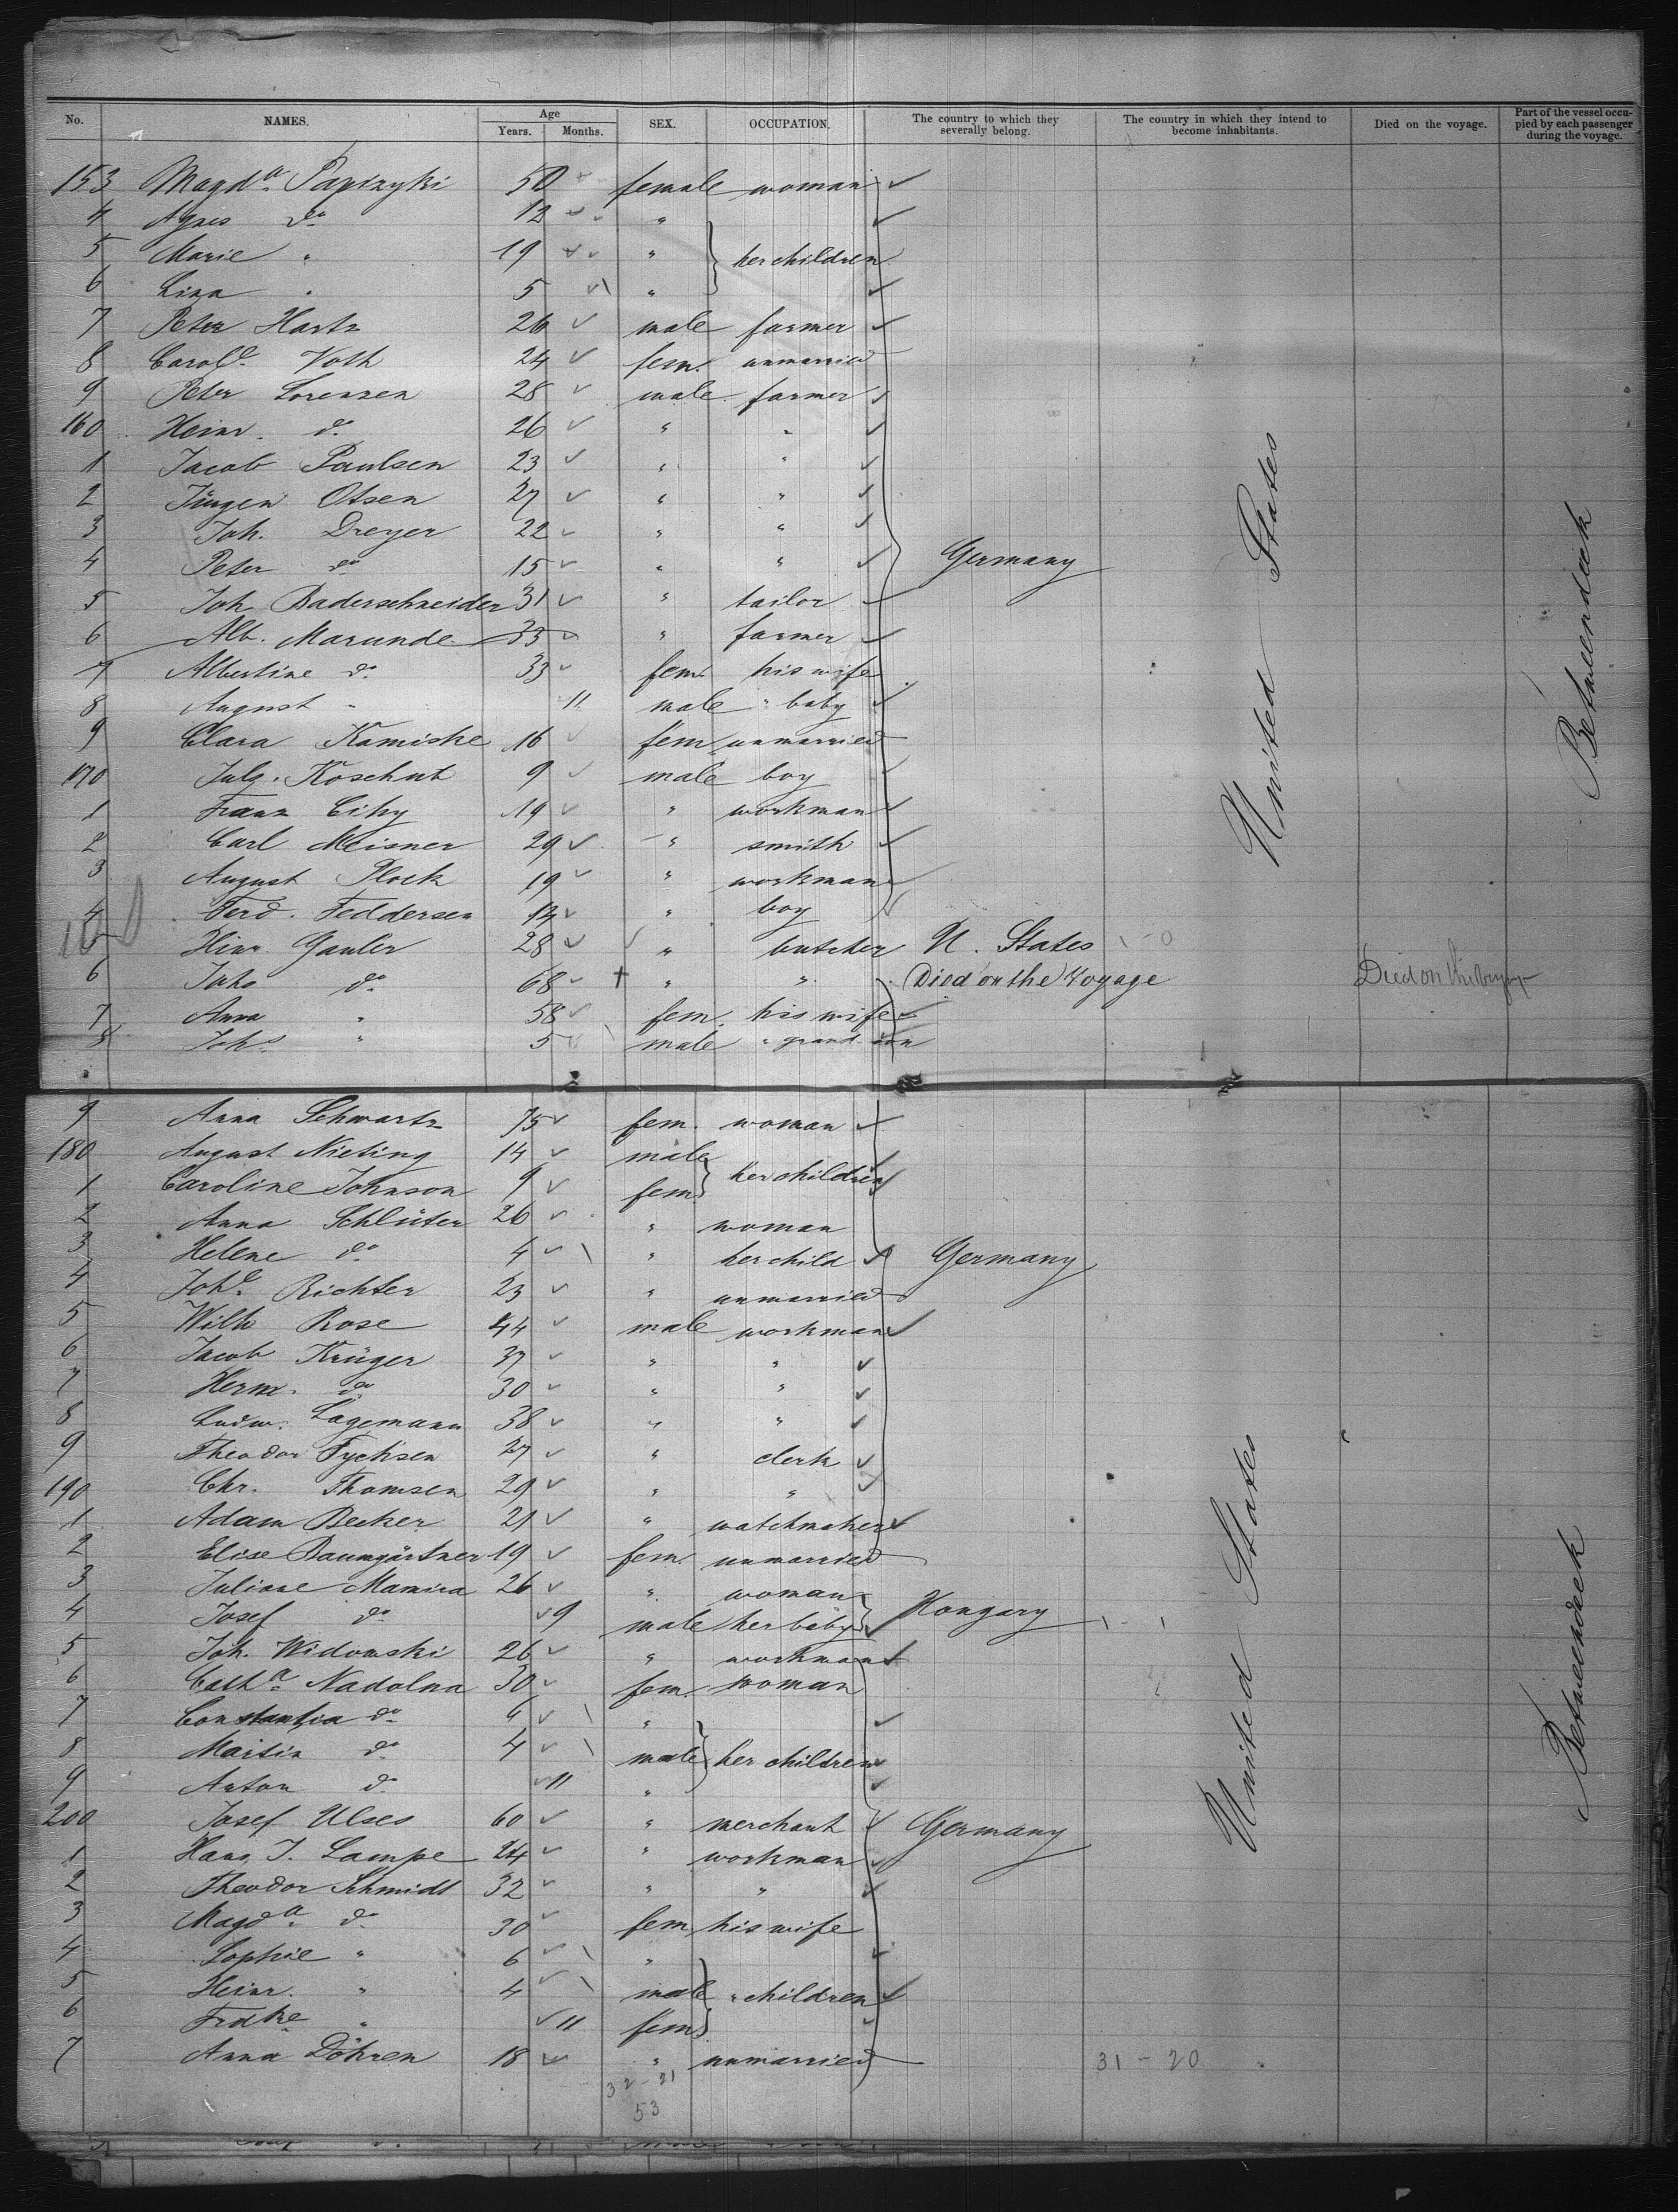 No. NAMES. Age Years. Months. SEX. OCCUPATION. The country to which they severally belong. The country in which they intend to become inhabitants. Died on the voyage. Part of the vessel occupied by each passenger during the voyage.
153 Magda. Paprzyki 50 female woman
4 Agnes do 12 "
5 Marie " 19 " her children
6 Lina " 5 "
7 Peter Hartz 26 male farmer
8 Carole. Voth 24 fem. unmarried
9 Peter Lorenzen 28 male farmer
160 Heinr. do 26 " "
1 Jacob Paulsen 23 " "
2 Jürgen Otsen 27 " "
3 Joh. Dreyer 22 " "
4 Peter do 15 " " Germany
5 Joh. Baderschneider 31 " tailor
6 Alb. Marunde 33 " farmer
7 Albertine do 33 fem. his wife
8 August " 11 male " baby
9 Clara Kamiske 16 fem unmarried
170 Julg. Koschut 9 male boy
1 Franz Cihy 19 " workman
2 Carl Meisner 29 " smith
3 August Plock 19 " workman
4 Ferd. Feddersen 14 " boy
5 Hinr. Gauler 28 " butcher U. States 1-0
6 Johs do 68 † " " Died on the Voyage Died on the Voyage
7 Anna " 58 fem. his wife
8 Johs " 5 male " grand son
United States
Betweendeck
9 Anna Schwartz 75 fem. woman
180 August Nieting 14 male her children
1 Caroline Johnson 9 fem
2 Anna Schlüter 26 " woman
3 Helene do 4 " her child Germany
4 Johe. Richter 23 " unmarried
5 Wilh Rose 44 male workman
6 Jacob Krüger 37 " "
7 Herm. do 30 " "
8 Ludw. Lagemann 38 " "
9 Theodor Tychsen 27 " clerk
190 Chr. Thomsen 29 " "
1 Adam Becker 21 " watchmaker
2 Elise Baumgärtner 19 fem. unmarried
3 Juliane Mamira 26 " woman
4 Josef do 9 male her baby Hongary 1-1
5 Joh. Widomski 26 " workman
6 Catha. Nadolna 30 fem. woman
7 Constantia do 6 "
8 Martin do 4 male her children
9 Anton do 11 "
200 Josef Ulses 60 " merchant Germany
1 Hans J. Lampe 24 " workman
2 Theodor Schmidt 32 " "
3 Magda. do 30 fem his wife
4 Sophie " 6 "
5 Heinr. " 4 male " children
6 Fredke " 11 fem
7 Anna Döhren 18 " unmarried 31-20
32-21
53
United States
Betweendeck